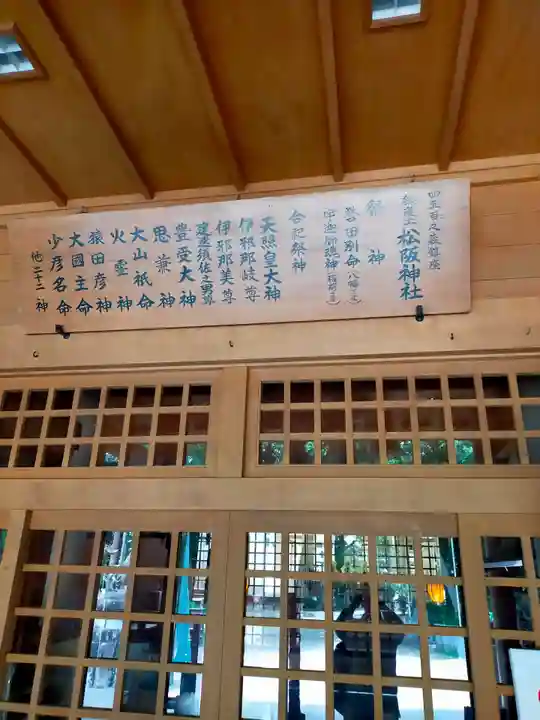 四五百之森鎮座
松阪神社
祭神
誉田別命（八幡さま）
宇迦御魂神（稲荷さま）
合祀祭神
天照皇大神
伊邪那岐尊
伊邪那美尊
建速須佐之男尊
豊受大神
思兼神
火霊神
大山祇命
猿田彦神
大國主命
少彦名命
他二十二神